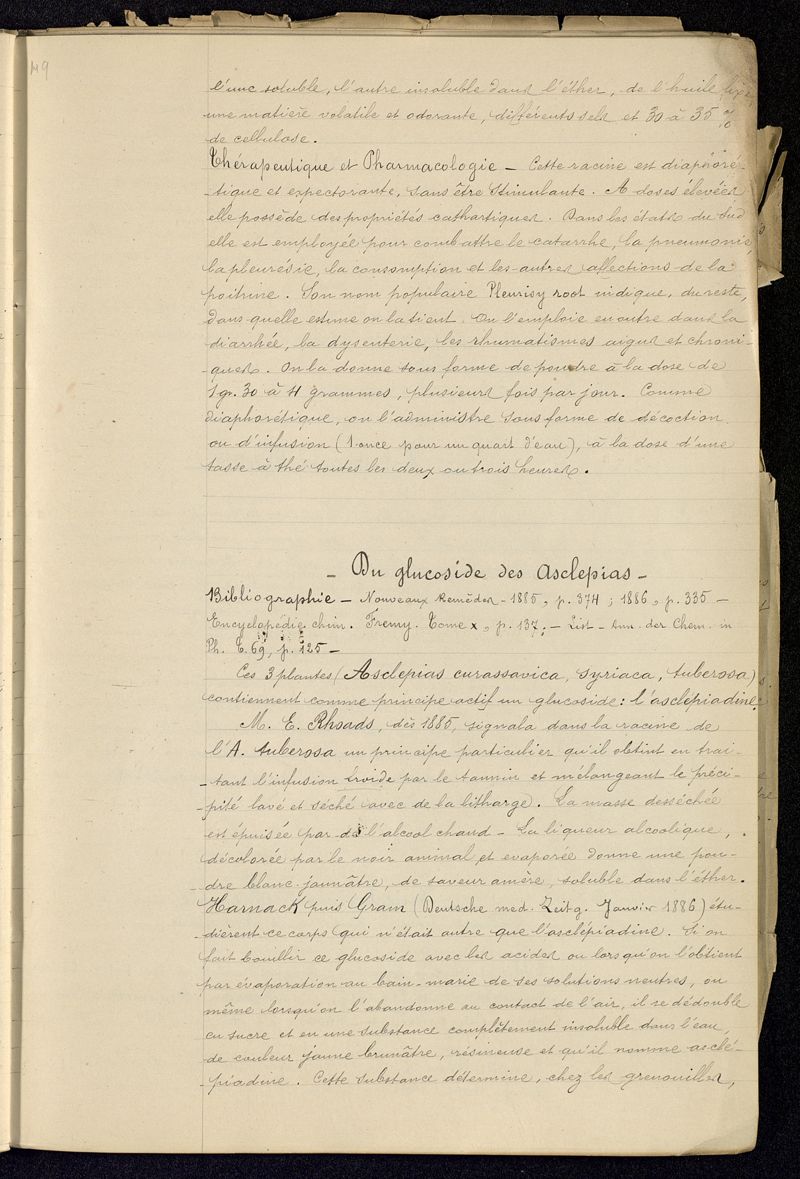 l'une soluble, l'autre insoluble dans l'éther, de l'huile fixe
une matière volatile et odorante, différents sels et 30 à 35 %
de cellulose.
Thérapeutique et Pharmacologie – Cette racine est diaphoré-
-tique et expectorante, sans être stimulante. A doses élevées
elle possède des propriétés cathartiques. Dans les états du Sud
elle est employée pour combattre le catarrhe, la pneumonie,
la pleurésie, la consomption et les autres affections de la
poitrine. Son nom populaire Pleurisy root indique, du reste,
dans quelle estime on la tient. On l'emploie en outre dans la
diarrhée, la dysenterie, les rhumatismes aigus et chroni-
-ques. On la donne sous forme de poudre à la dose de
1 gr. 30 à 4 grammes, plusieurs fois par jour. Comme
diaphorétique, on l'administre sous forme de décoction
ou d'infusion (1 once pour un quart d'eau), à la dose d'une
tasse à thé toutes les deux ou trois heures.
– Du glucoside des Asclepias –
Bibliographie – Nouveaux Remèdes - 1885, p. 374 ; 1886, p. 335 –
Encyclopédie chim. Fremy. Tome X, p. 137; – List – Ann. der Chem. in
Ph. T. 69, p. 125 –
Ces 3 plantes (Asclepias curassavica, syriaca, tuberosa)
contiennent comme principe actif un glucoside : l'asclépiadine.
M. E. Rhoads, dès 1885, signala dans la racine de
l'A. tuberosa un principe particulier qu'il obtint en trai-
-tant l'infusion froide par le tannin et mélangeant le préci-
-pité lavé et séché avec de la litharge. La masse desséchée
est épuisée par de l'alcool chaud – La liqueur alcoolique,
décolorée par le noir animal et evaporée donne une pou-
-dre blanc-jaunâtre, de saveur amère, soluble dans l'éther.
Harnack puis Gram (Deutsche med. Zeitg. Janvier 1886) étu-
-dièrent ce corps qui n'était autre que l'asclépiadine. Si on
fait bouillir ce glucoside avec les acides ou lorsqu'on l'obtient
par évaporation au bain-marie de ses solutions neutres, ou
même lorsqu'on l'abandonne au contact de l'air, il se dédouble
en sucre et en une substance complètement insoluble dans l'eau,
de couleur jaune brunâtre, résineuse et qu'il nomme asclé-
-piadine. Cette substance détermine, chez les grenouilles,